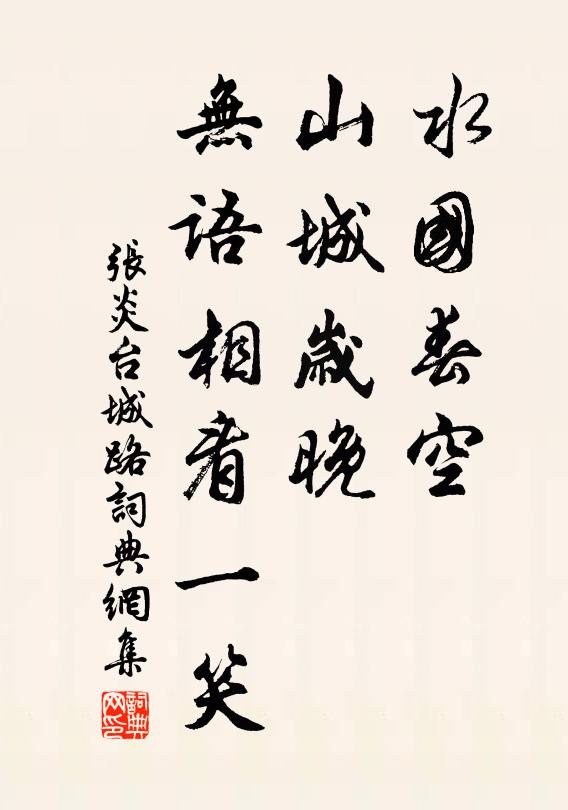 水國春空
山城歲晚
無語相看一笑
張炎台城路詞典網集
詞典網印